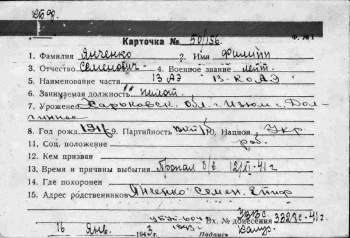 Карточка № 50/156
Ф. № 1
1. Фамилия Янченко 2. Имя Филипп
3. Отчество Семенович 4. Военное звание лейт.
5. Наименование части 13 АЭ 13-КоАЭ
6. Занимаемая должность пилот
7. Уроженец Харьковск. обл. г. Изюм г. Дол-
8. Год рожд. 1916. Партийность Национ. Укр
11. Соц. положение раб.
12. Кем призван
13. Время и причины выбытия Пропал б/в 12/XI-41 г
14. Где похоронен
15. Адрес родственников Янченко Семен.
16 Янв. 194 г. Подпись Вх. № донесения 3328с-41г.